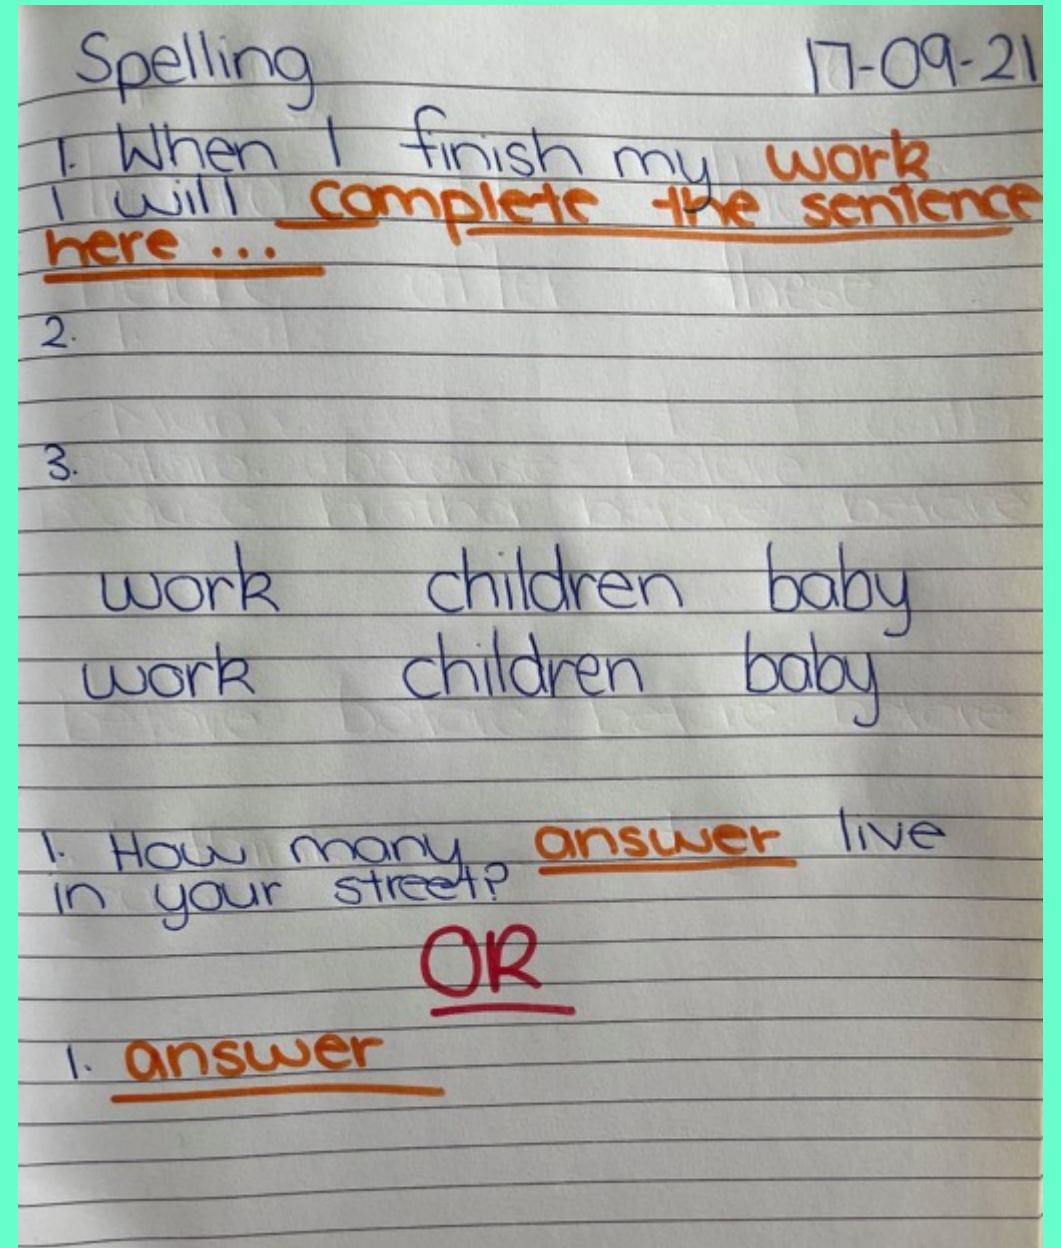 Spelling 17-09-21
1. When I finish my work
I will complete the sentence
here ...
2.
3.
work children baby
work children baby
1. How many answer live
in your street?
OR
1. answer